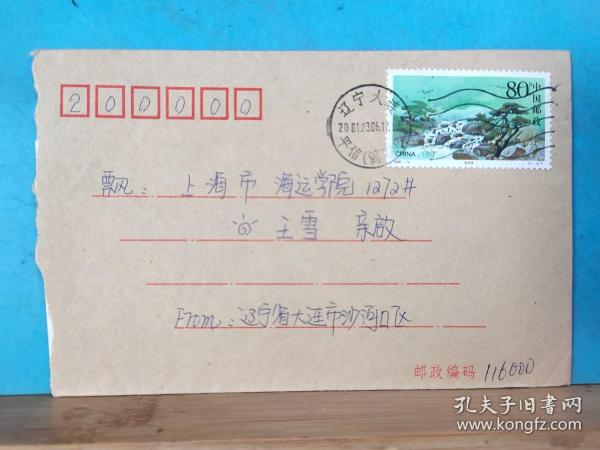 200000
80分
中国邮政
CHINA
辽宁大连
2001.03.06.17
飘：上海市 海运学院1272#
王雪 亲启
From：辽宁省大连市沙河口区
邮政编码 116000
孔夫子旧书网
www.kongfz.com